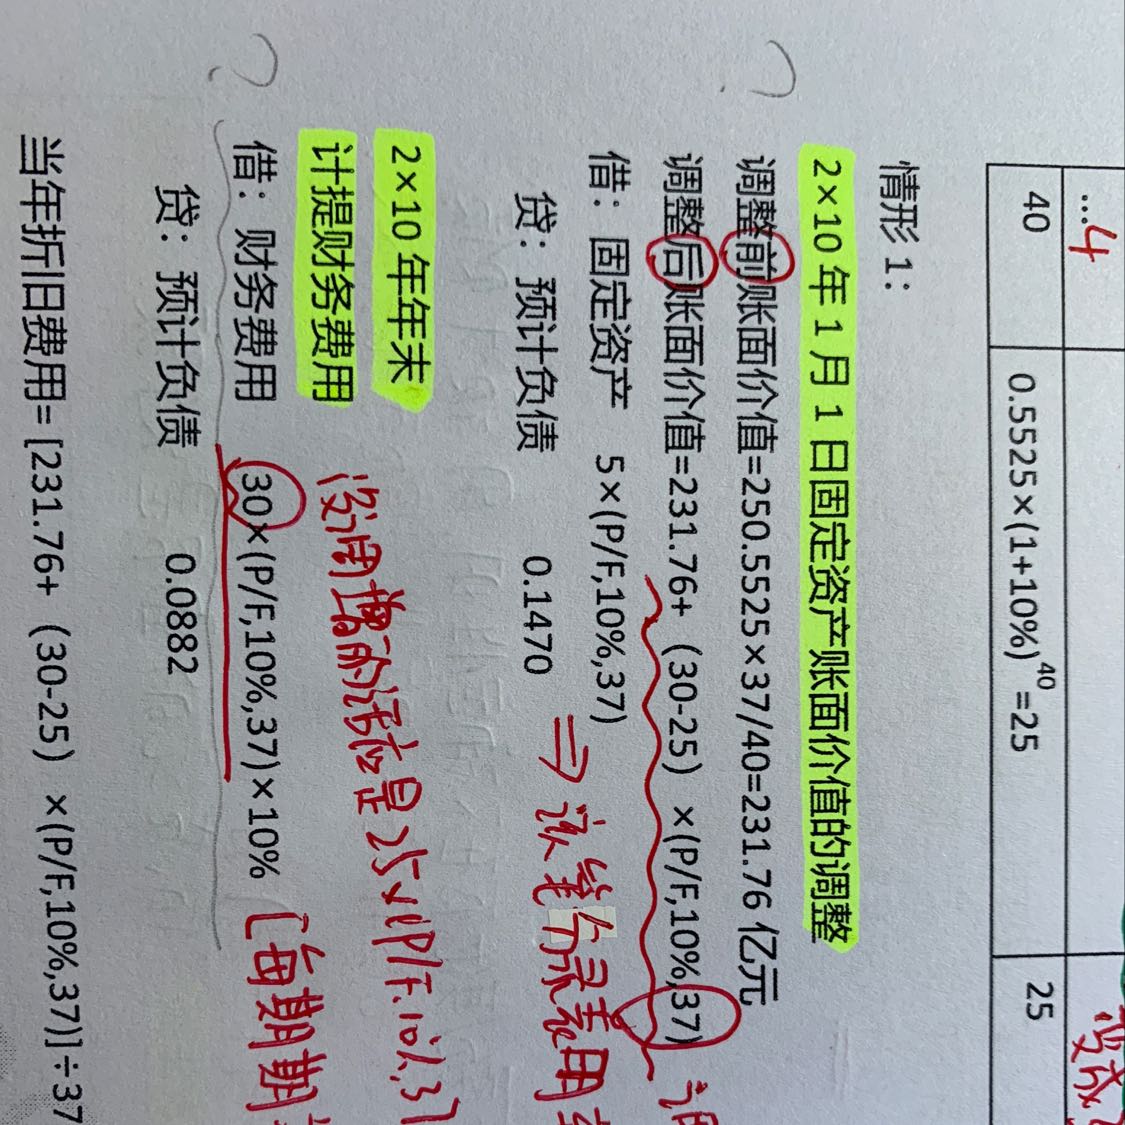 ...4
40 0.5525×(1+10%)⁴⁰=25 25
变成
情形 1：
2×10 年 1 月 1 日固定资产账面价值的调整
调整前账面价值=250.5525×37/40=231.76 亿元
调整后账面价值=231.76+（30-25）×(P/F,10%,37)
借：固定资产 5×(P/F,10%,37)
贷：预计负债 0.1470
⇒ 该笔分录表明
2×10 年年末
计提财务费用
没有增的话应是25×(P/F.10%,37)
借：财务费用 30×(P/F,10%,37)×10% [每期期
贷：预计负债 0.0882
当年折旧费用= [231.76+（30-25）×(P/F,10%,37)]÷37